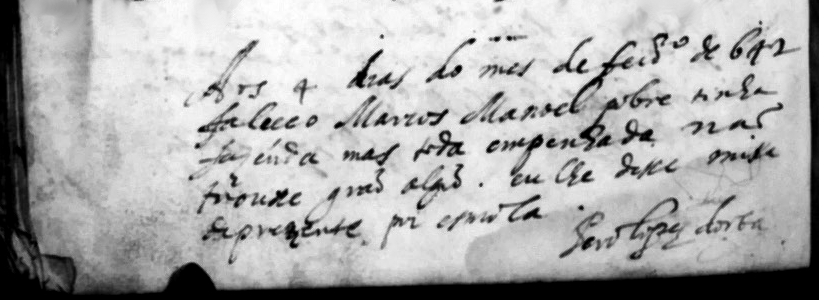 Aos 4 dias do mes de feur.º de 642
faleceo Marcos Manoel pobre tinha
fazenda mas toda empenhada não
trouxe grão algũ. eu lhe disse missa
de prezente por esmola.
Lopez dorta